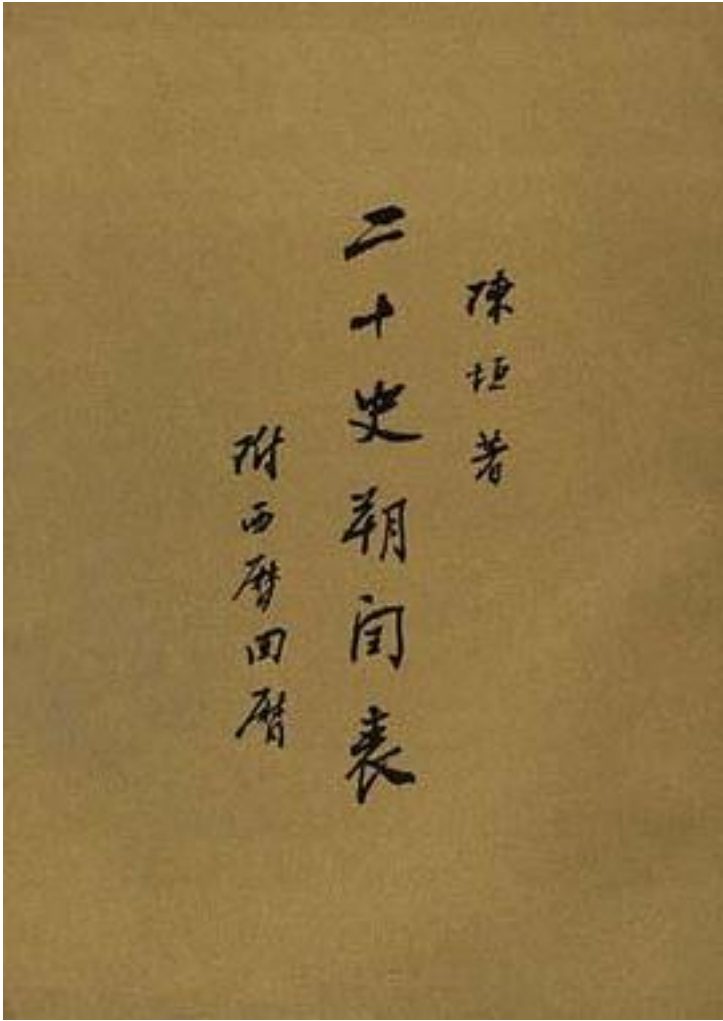 陳垣著
二十史朔闰表
附西曆回曆